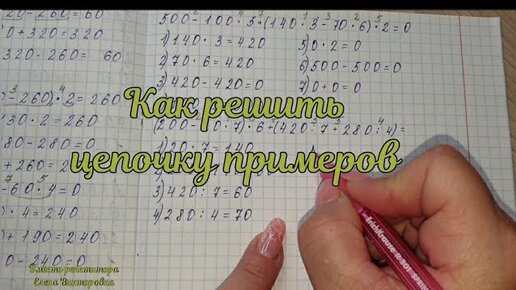 20 - 260 = 60
0 + 320 = 320
320 - 260 = 60
- 260) · 2 = 260
130 · 2 = 260
80 - 280 = 0
+ 260 =
- 60 · 4 = 0
) · 4 = 240
+ 190 = 240
0 - 240 = 0
500 - 100 · 5 + (140 · 3 - 70 · 6) · 2 = 0
1) 140 · 3 = 420
2) 70 · 6 = 420
3) 420 - 420 = 0
5) 0 · 2 = 0
6) 500 - 500 = 0
7) 0 + 0 = 0
Как решить
цепочку примеров
(200 - 20 · 7) · 6 + (420 : 7 + 280 : 4) =
1) 20 · 7 = 140
3) 420 : 7 = 60
4) 280 : 4 = 70
ErichKrause R-301
Вместо репетитора
Елена Викторовна